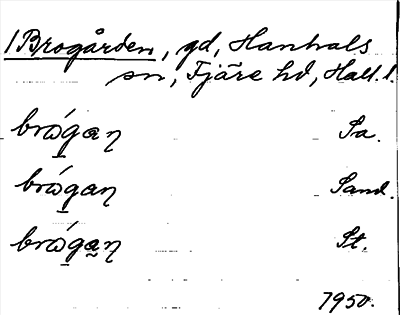 1 Brogården, gd, Hanhals
sn, Fjäre hd, Hall. l.
brógaꞑ Sa.
brógaꞑ Sand.
brógaꞑ St.
1950.